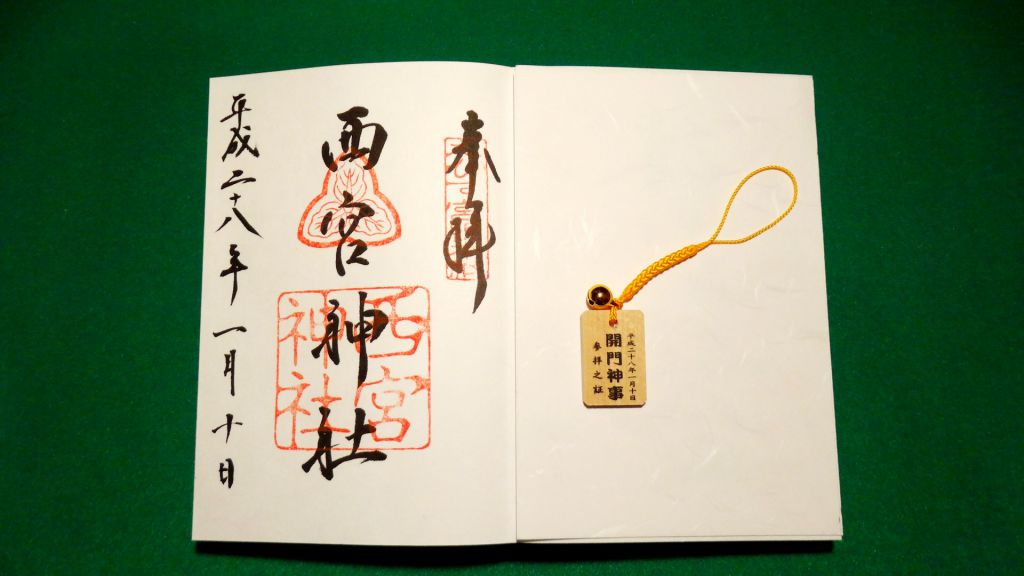 奉拝
西宮神社
西宮
神社
平成二十八年一月十日
平成二十八年一月十日
開門神事
参拝之証